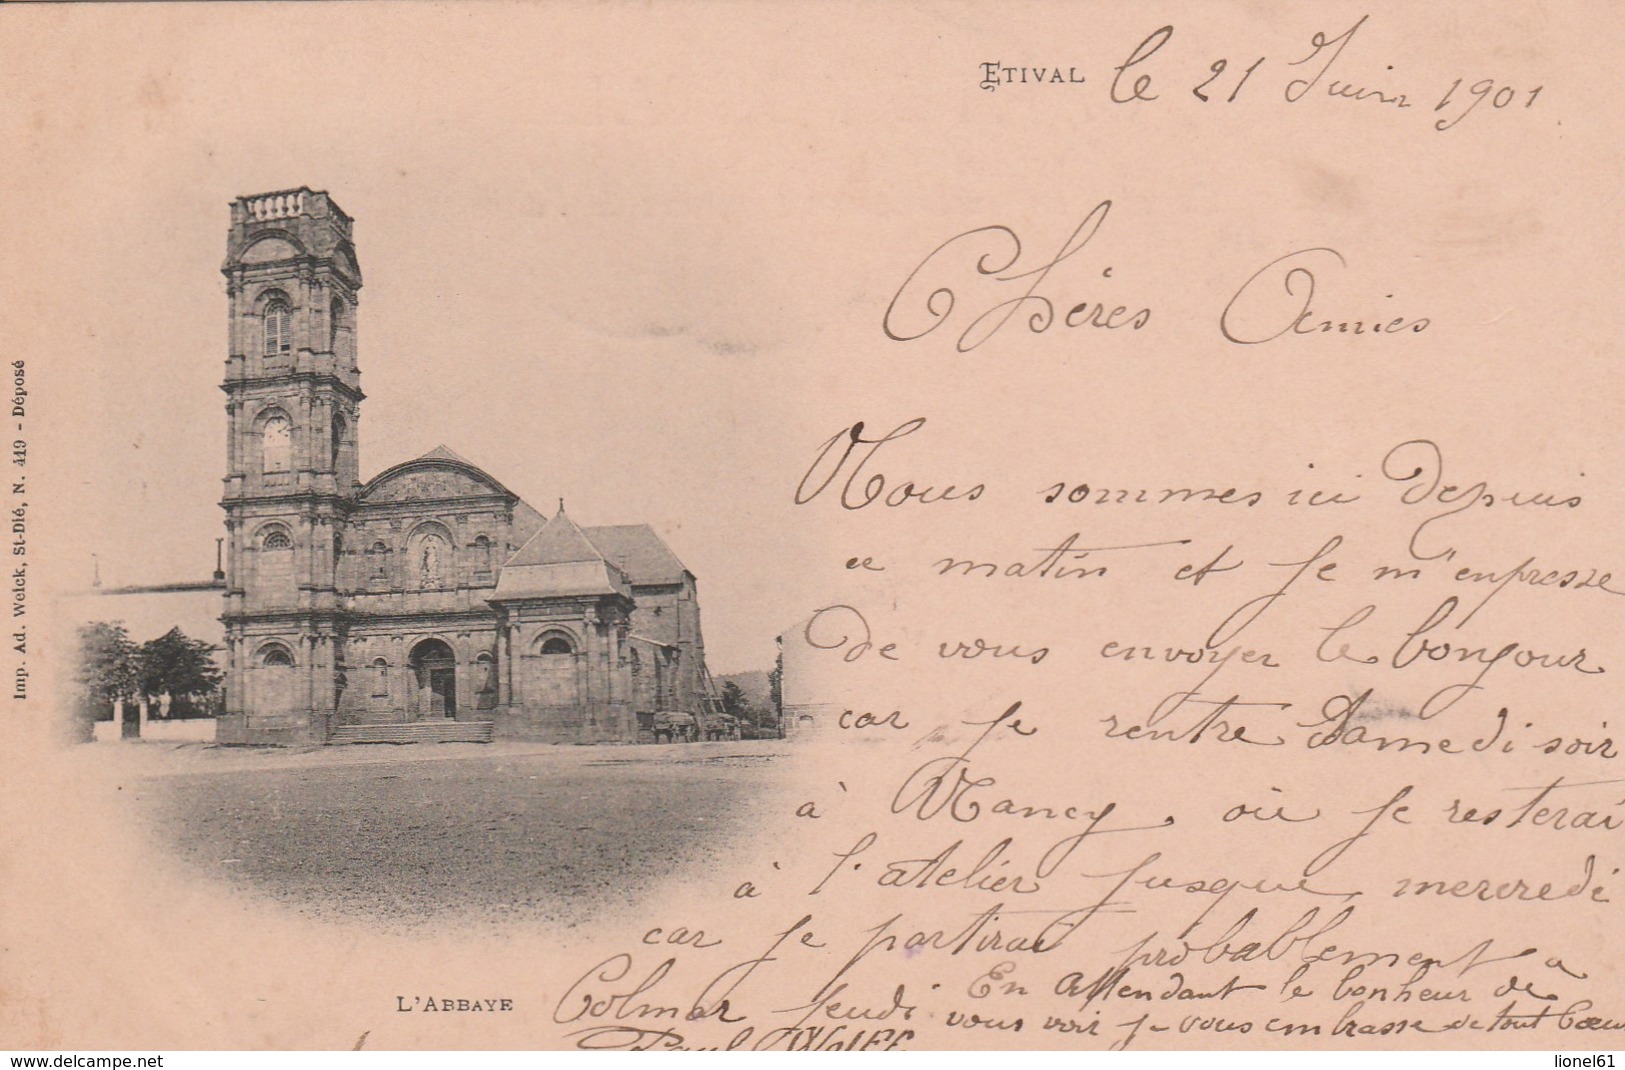 ETIVAL le 21 Juin 1901
Chères Amies
Nous sommes ici depuis
ce matin et je m'enpresse
de vous envoyer le bonjour
car je rentre Samedi soir
à Nancy, où je resterai
à l'atelier jusque mercredi
car je partirai probablement à
Colmar jeudi. En Attendant le bonheur de
vous voir je vous embrasse de tout Cœur
Paul Wolff
L'ABBAYE
Imp. Ad. Weick, St-Dié, N. 419 - Déposé
delcampe.net
lionel61